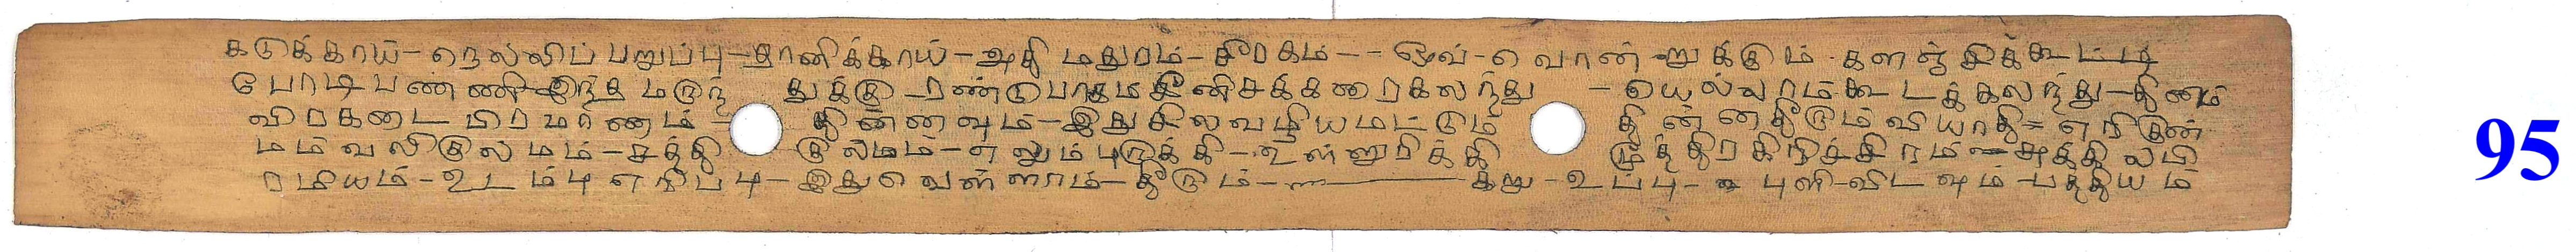 கடுக்காய் - நெல்லிப் பறுப்பு - தானிக்காய் - அதி மதுரம் - சீரகம் - - ஒவ் - வொன் றுக்கும் களஞ்சிக்கூட்டி
பொடி பண்ணி இந்த மருந் துக்கு ரண்டுபாகம் சீனிசக்கரைகலந்து - யெல்லாம்கூடக்கலந்து - தினம்
விரகடை பிரமாணம் தின்னவும் - இதுசில வழியமட்டும் தின்னதீரும் வியாதி = எரிகுன்
மம் வலிகுல்மம் - சத்தி குல்மம் - எலும்புருக்கி - உள்ளுரிக்கி முத்திரகிரிச்சிரம் - அத்தி லபி
ரமியம் - உடம்பு எரிப்பு - இதுவெள்ளாம் - தீரும் - கறு - உப்பு - புளி - விடவும் - பத்தியம்
95